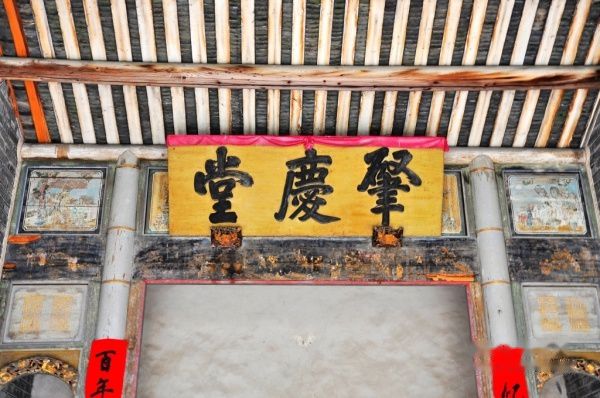 肇慶堂
百年